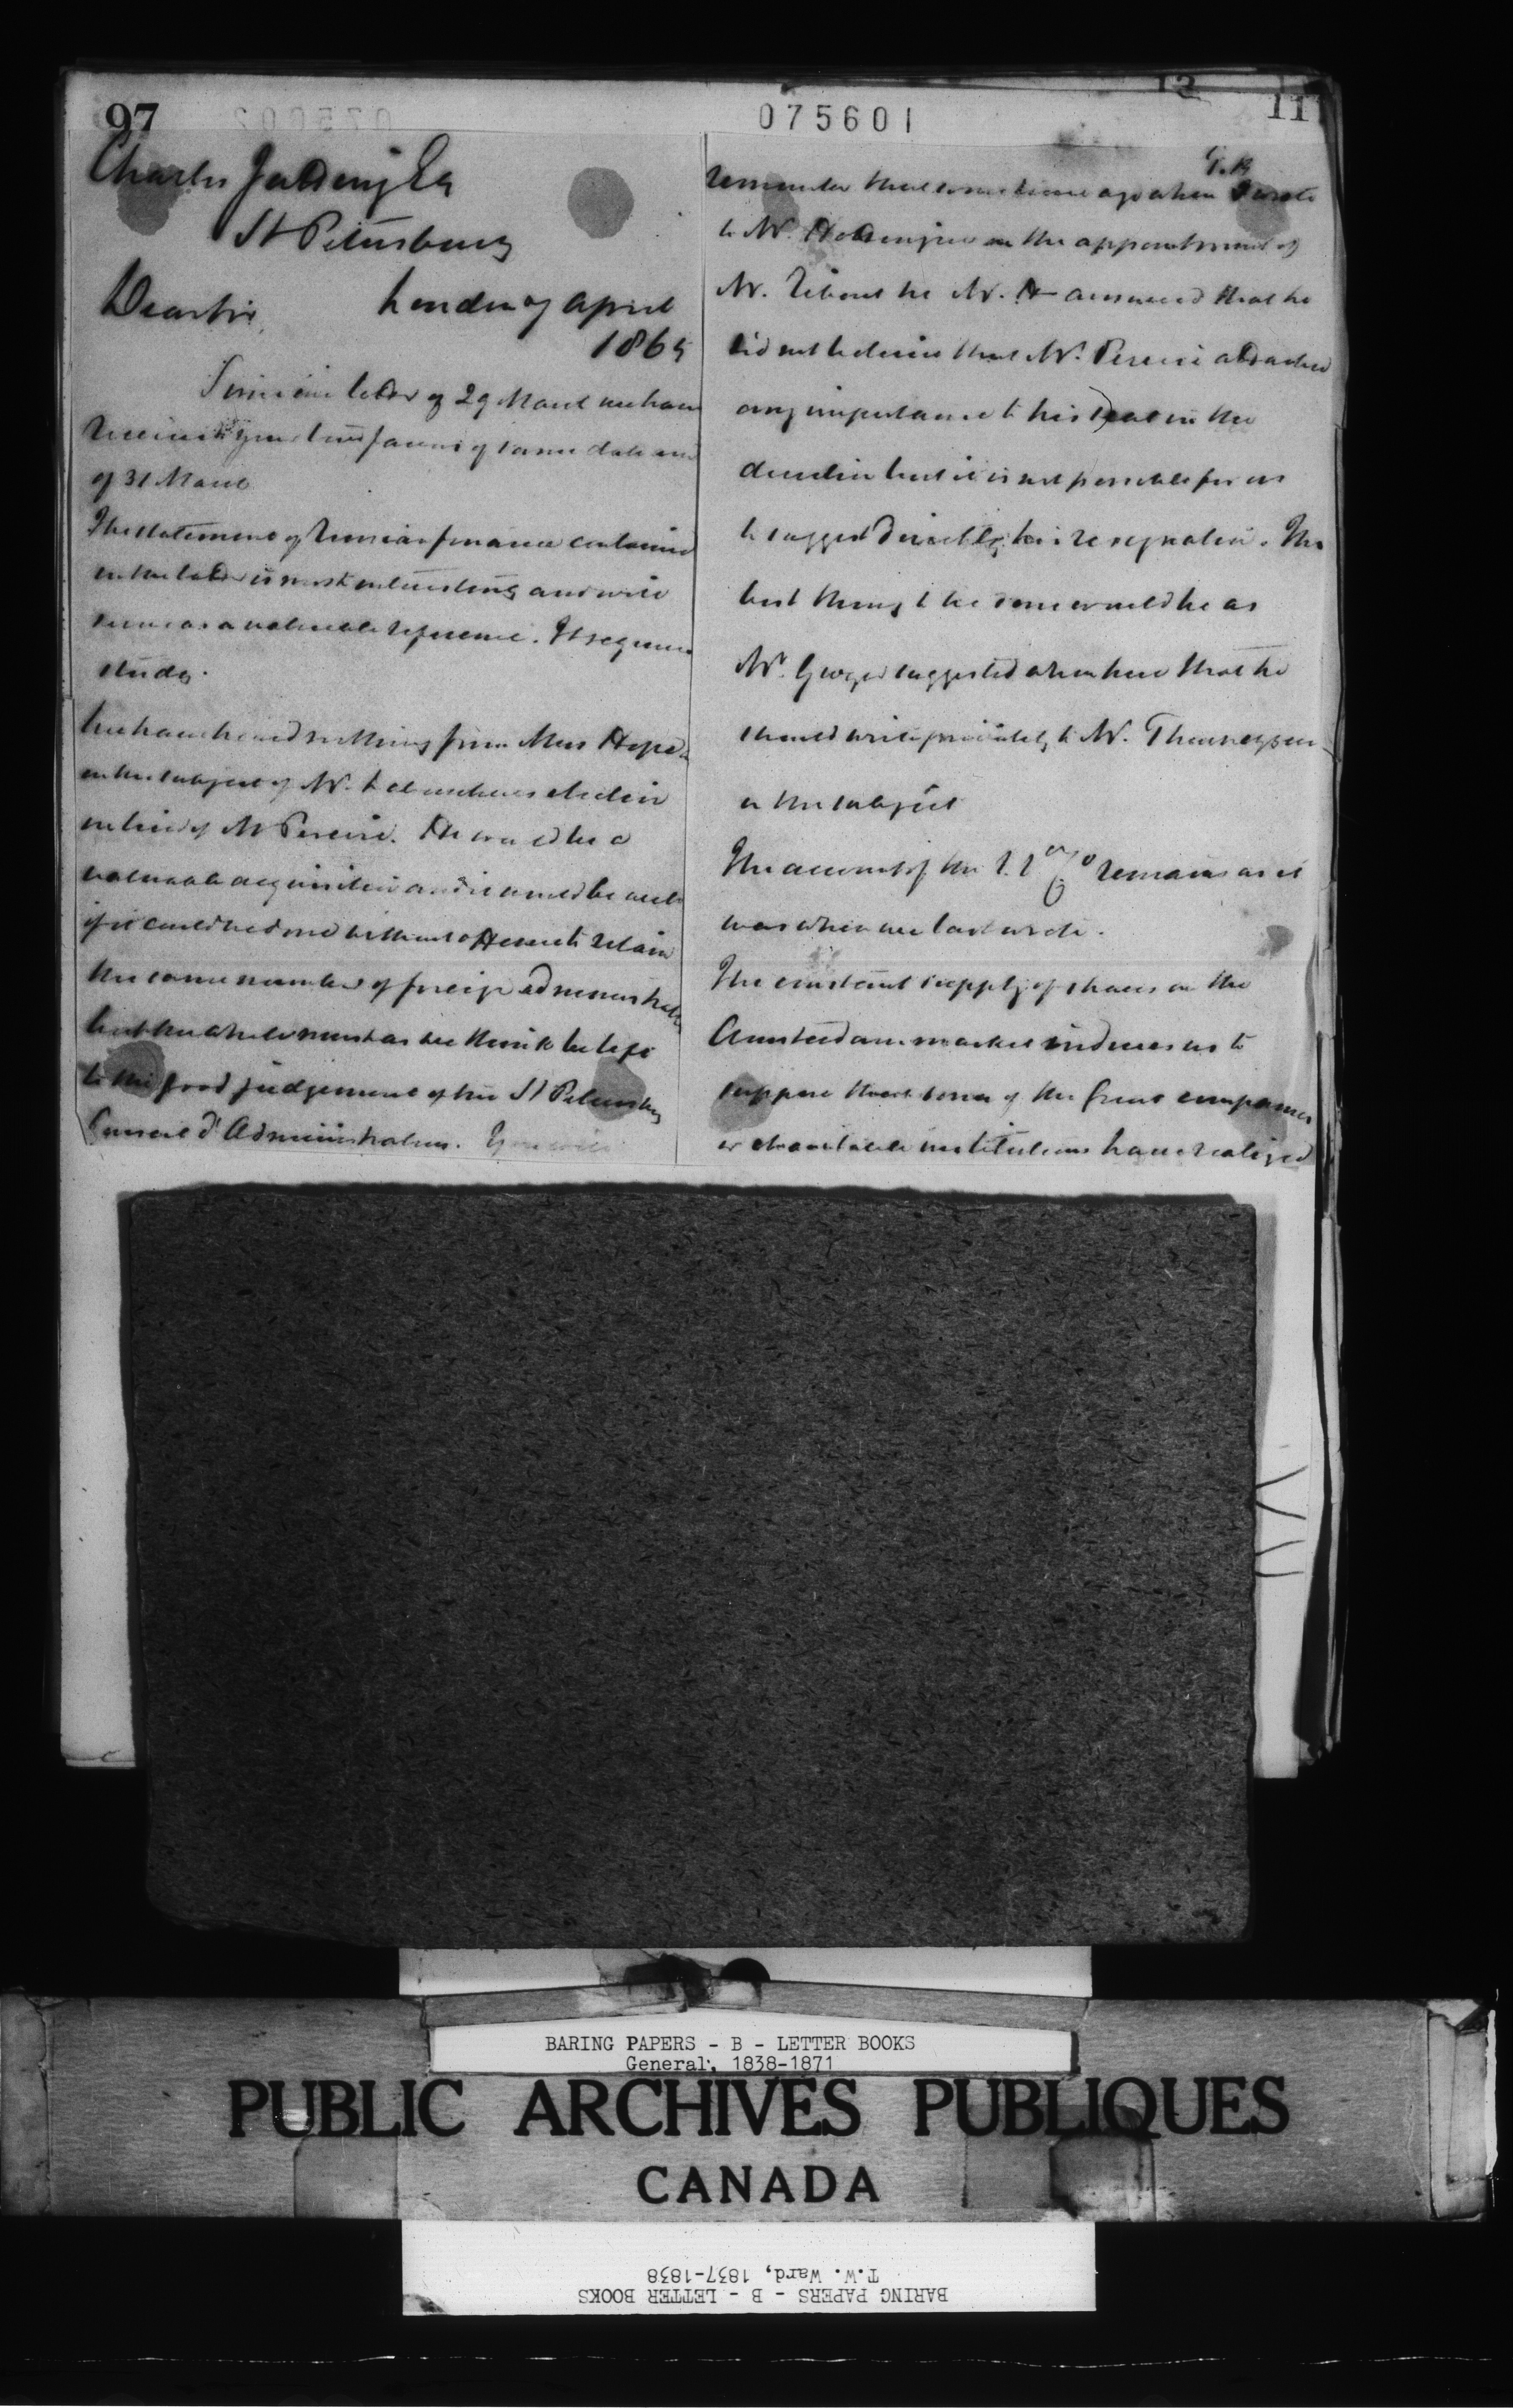 97
075601
11
Charles Esq
St Petersburg
Dear Sir, London 7 April
1865
Since our letter of 29 March we have
received your two favors of same date and
of 31 March
The statement of Russian finance contained
in the latter is most interesting and will
serve as a valuable reference. It requires
study.
We have heard nothing from Mess Hope &
on the subject of Mr. election
in lieu of Mr Pereire. He would be a
valuable acquisition and it would be well
if it could be done without offence to retain
the same number of foreign
but the whole must as we think be left
to the good judgement of the St Petersburg
Conseil d'Administration. You will
remember that some time ago when T.B. wrote
to Mr. Hottinguer on the appointment of
Mr. he Mr. H answered that he
did not believe that Mr. Pereire attached
any importance to his seat in the
direction but it is not possible for us
to suggest directly his resignation. The
best thing to be done would be as
Mr. suggested when here that he
should write privately to Mr. Thurneyssen
on the subject
The account of the remains as it
was when we last wrote.
The constant supply of shares on the
Amsterdam market induces us to
suppose that some of the great companies
or charitable institutions have realized
BARING PAPERS - B - LETTER BOOKS
General, 1838-1871
PUBLIC ARCHIVES PUBLIQUES
CANADA
BARING PAPERS - B - LETTER BOOKS
T.W. Ward, 1837-1838